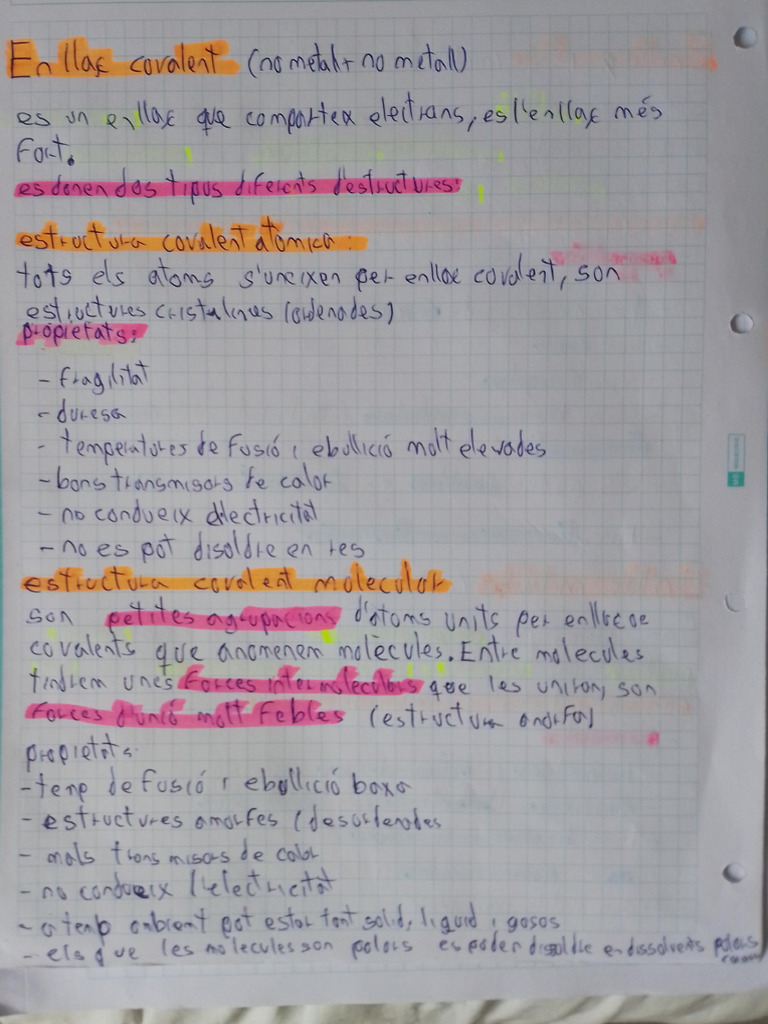 Enllaç covalent (no metal + no metall)
es un enllaç que comparteix electrans, es l'enllaç més
fort.
es donen dos tipus diferents d'estructures:
estructura covalent atòmica:
tots els atoms s'uneixen per enllac covalent, son
estructures cristalines (ordenades)
propietats:
- fragilitat
- duresa
- temperatures de fusió i ebullició molt elevades
- bons transmisors de calor
- no condueix electricitat
- no es pot disoldre en res
estructura covalent molecular
son petites agrupacions d'atoms units per enllacoe
covalents que anomenem molècules. Entre molecules
tindrem unes forces intermoleculars que les uniran, son
forces d'unió molt febles (estructura amorfa)
propietats
- temp de fusió i ebullició baxa
- estructures amorfes (desordenades
- mals transmisors de calor
- no condueix l'electricitat
- a temp ambient pot estar tant solid, liquid i gasos
- els que les molecules son polars es poden disoldre en dissolvents polars